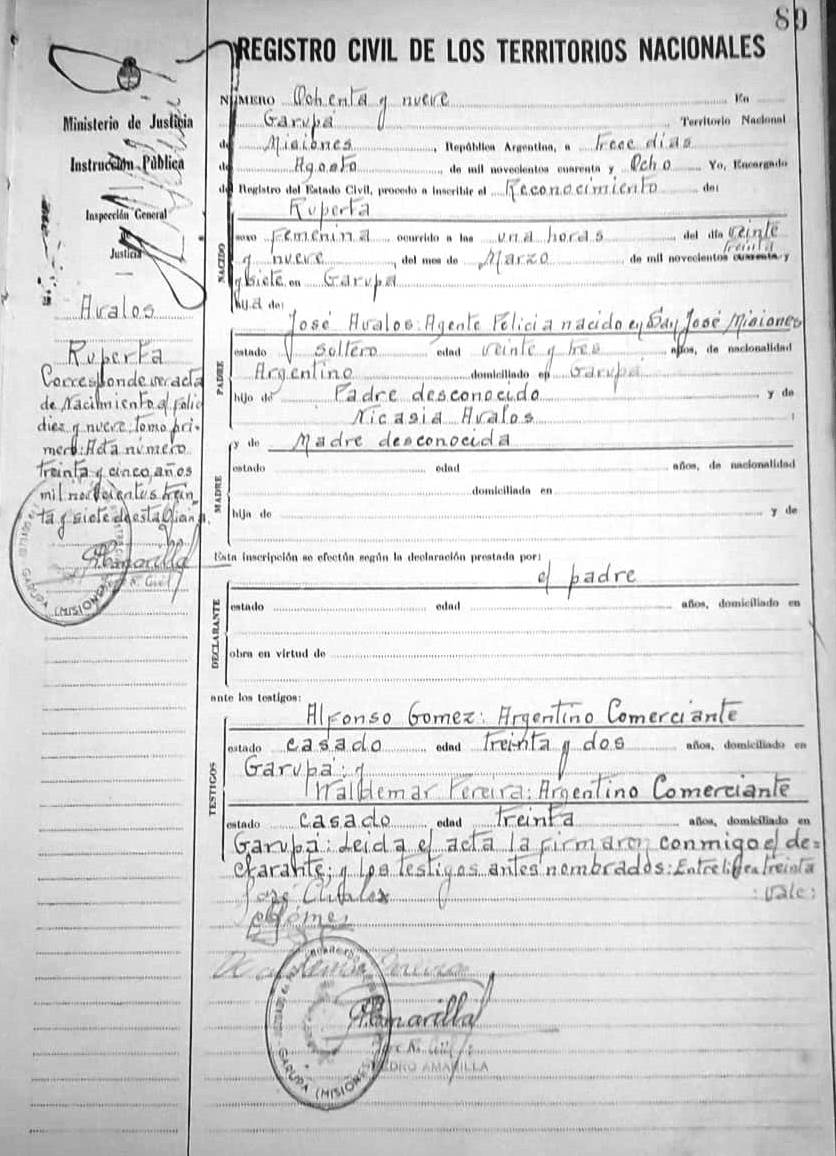 89
REGISTRO CIVIL DE LOS TERRITORIOS NACIONALES
Ministerio de Justicia
Instrucción Pública
Inspección General
Justicia
Avalos
Ruperta
Corresponde ver acta
de Nacimiento al folio
diez y nueve, tomo pri-
mero: Acta número
treinta y cinco, años
mil novecientos trein
ta y siete de esta
NÚMERO Ochenta y nueve En
Garupá Territorio Nacional
de Misiones, República Argentina, a trece dias
de Agosto de mil novecientos cuarenta y Ocho Yo, Encargado
del Registro del Estado Civil, procedo a inscribir el Reconocimiento de:
Ruperta
NACIDO
sexo femenina ocurrido a las una horas del día veinte
treinta
y nueve, del mes de Marzo de mil novecientos cuarenta y
y siete en Garupá
hija de:
PADRE
José Avalos: Agente Policia nacido en San José Misiones
estado Soltero edad veinte y tres años, de nacionalidad
Argentino domiciliado en Garupá
hijo de Padre desconocido y de
Nicasia Avalos;
MADRE
y de Madre desconocida
estado edad años, de nacionalidad
domiciliada en
hija de y de
Esta inscripción se efectúa según la declaración prestada por:
el padre
DECLARANTE
estado edad años, domiciliado en
obra en virtud de
ante los testigos:
TESTIGOS
Alfonso Gomez: Argentino Comerciante
estado casado edad treinta y dos años, domiciliado en
Garupá: y
Waldemar Pereira: Argentino Comerciante
estado casado edad treinta años, domiciliado en
Garupá: Leida el acta la firmaron conmigo el de=
clarante; y los testigos antes nombrados: Entre linea treinta
: vale:
José Avalos
Gómez
Waldemar Pereira
Amarilla
PEDRO AMARILLA
GARUPA (MISIONES)
Amarilla
GARUPA (MISIONES)